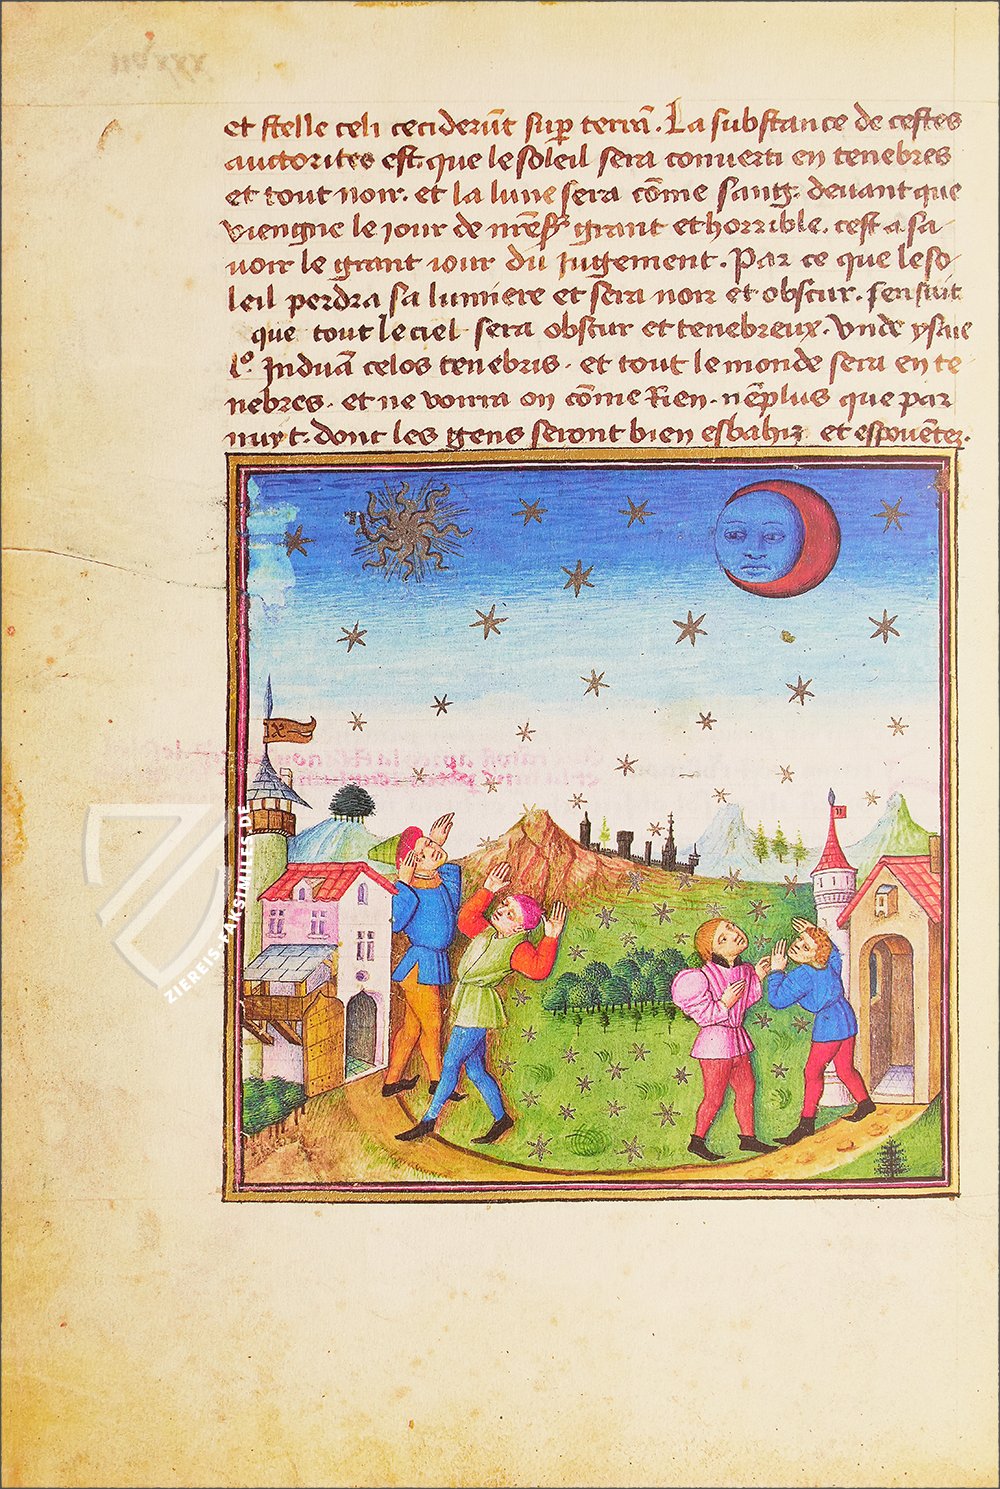 et stelle celi ceciderūt sup terrā. La substance de cestes
auctorites est. que le soleil sera conuerti en tenebres
et tout noir. et la lune sera cōme sang. deuant que
viengne le iour de nrēsr̄ grant et horrible. cest a sa
uoir le grant iour du iugement. Par ce que le so
leil perdra sa lumiere et sera noir et obscur. sensuit
que tout le ciel sera obscur et tenebreux. Vnde ysaie
l°. Induā celos tenebris. et tout le monde sera en te
nebres. et ne uoirra on cōme Rien. nē plus que par
nuyt. dont les gens seront bien esbahiz et espouētez.
ZIEREIS-FAKSIMILES.DE